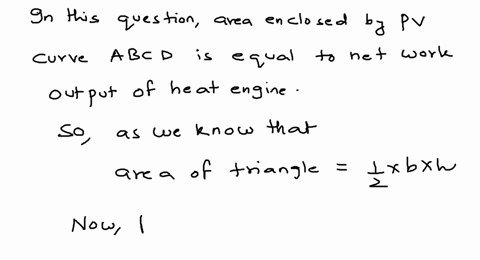 In this question, area enclosed by PV
curve ABCD is equal to net work
output of heat engine.
So, as we know that
area of triangle = 1/2 x b x h
Now, |